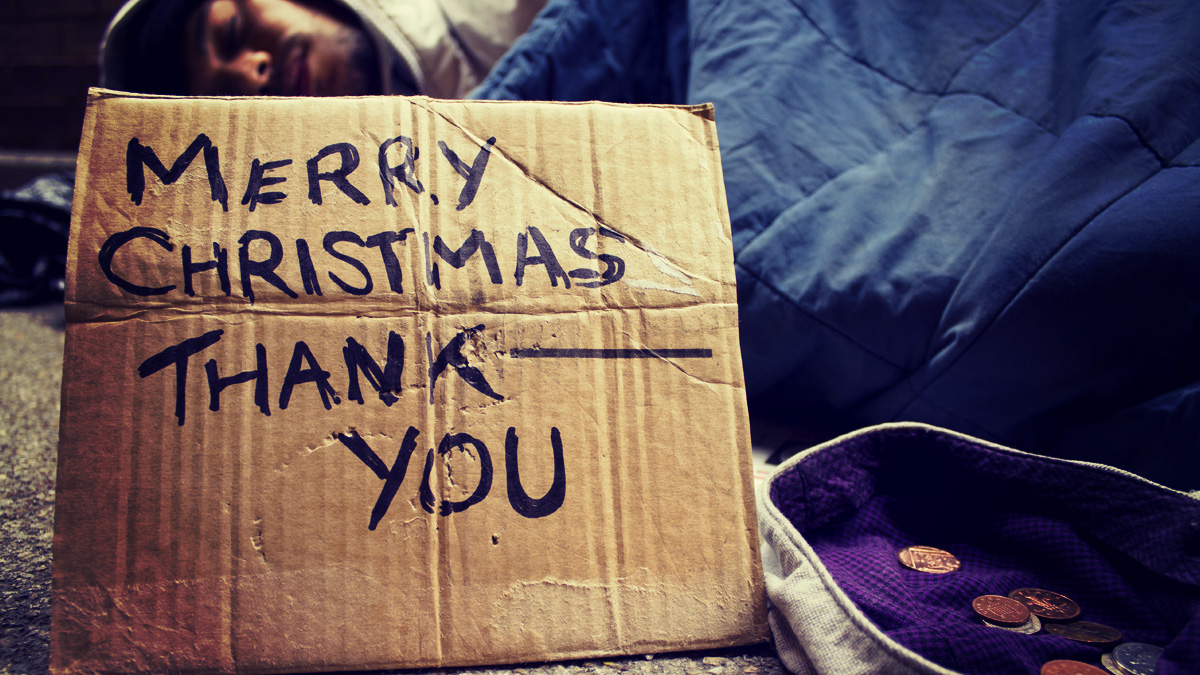 MERRY
CHRISTMAS
THANK —
YOU